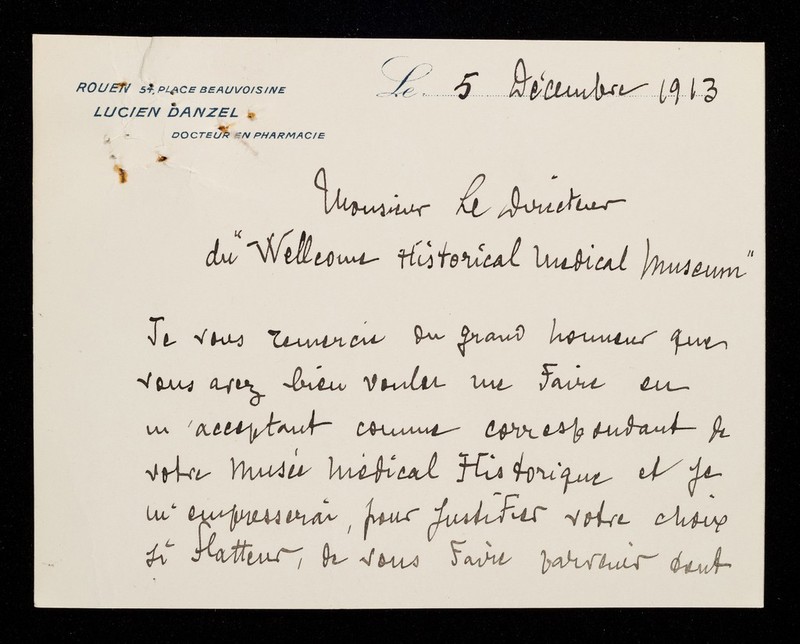 ROUEN 54, PLACE BEAUVOISINE
LUCIEN DANZEL
DOCTEUR EN PHARMACIE
Le. 5 Décembre 1913
Monsieur Le Directeur
du "Wellcome Historical Medical Museum"
Je vous remercie du grand honneur que
vous avez bien voulu me Faire en
m'acceptant comme correspondant de
votre Musée Médical Historique et je
m'empresserai, pour justifier votre choix
si Flatteur, de vous Faire parvenir tout